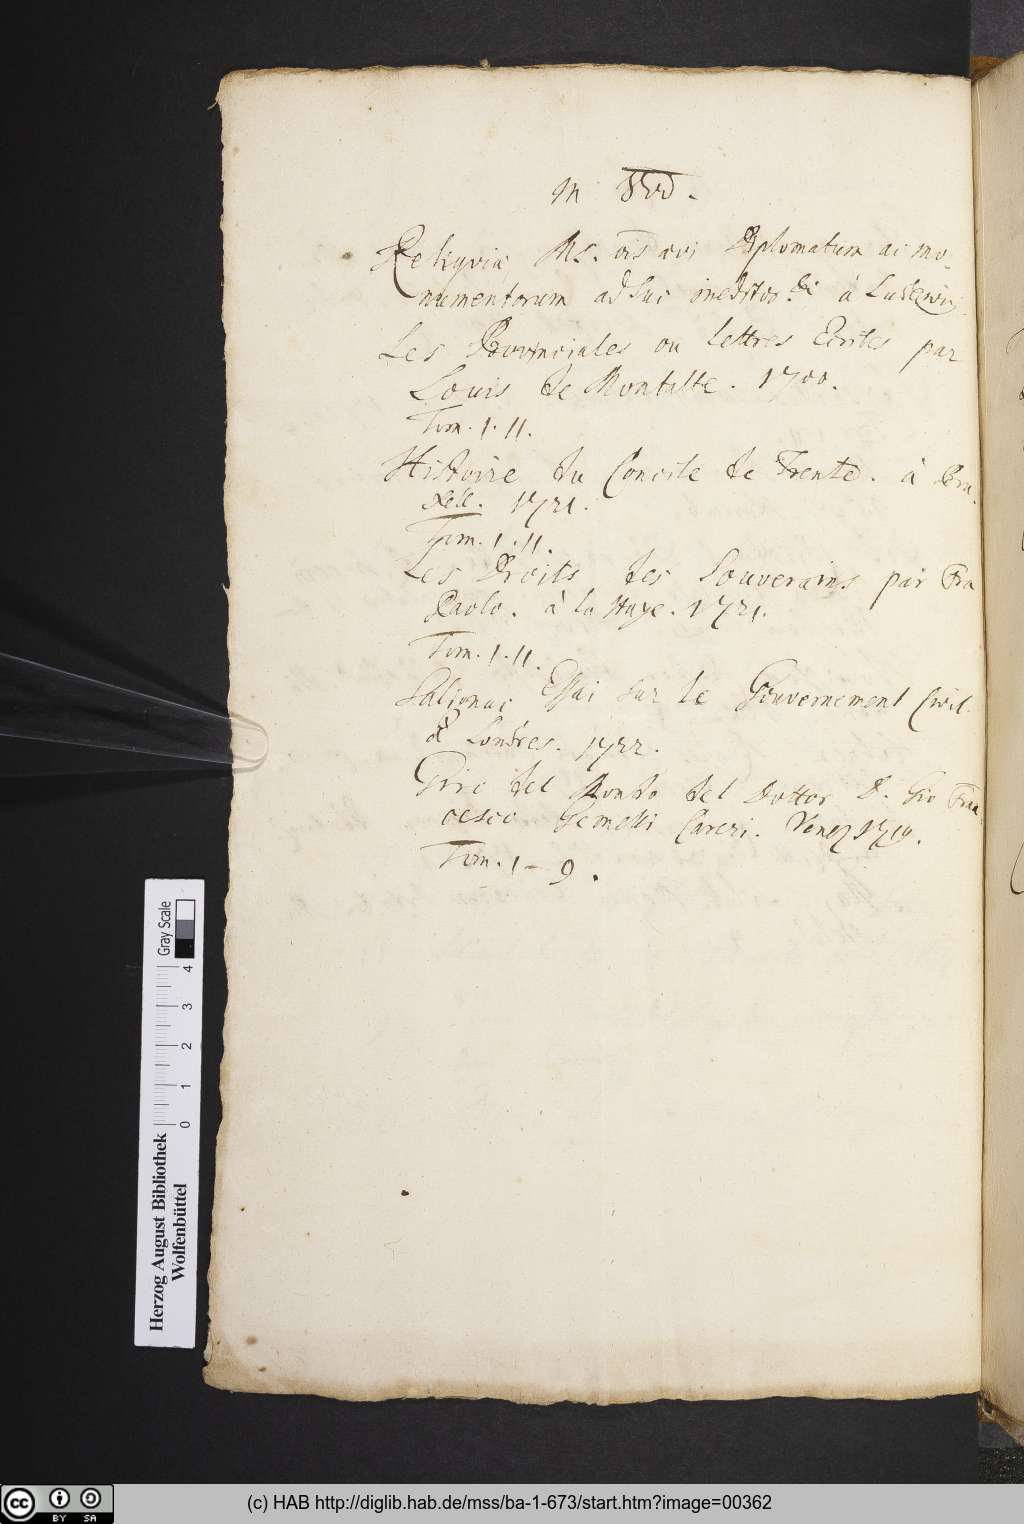 in 8vo.
Reliqviæ Ms. ōis ævi Diplomatum ac mo-
numentorum adhuc ineditor. à Ludewig.
Les Provinciales ou lettres Ecrites par
Louis de Montalte. 1700.
Tom. I. II.
Histoire du Concile de Trente. à Bru-
xell. 1721.
Tom. I. II.
Les Droits des Souverains par Fra
Paolo. à la Haye. 1721.
Tom. I. II.
Salignac Essai sur le Gouvernement Civil.
à Londres. 1722.
Giro del Mondo del Dottor D. Gio Fran-
cesco Gemelli Careri. Venez 1719.
Tom. 1 - 9.
Gray Scale
0 1 2 3 4
Herzog August Bibliothek
Wolfenbüttel
cc BY SA
(c) HAB http://diglib.hab.de/mss/ba-1-673/start.htm?image=00362